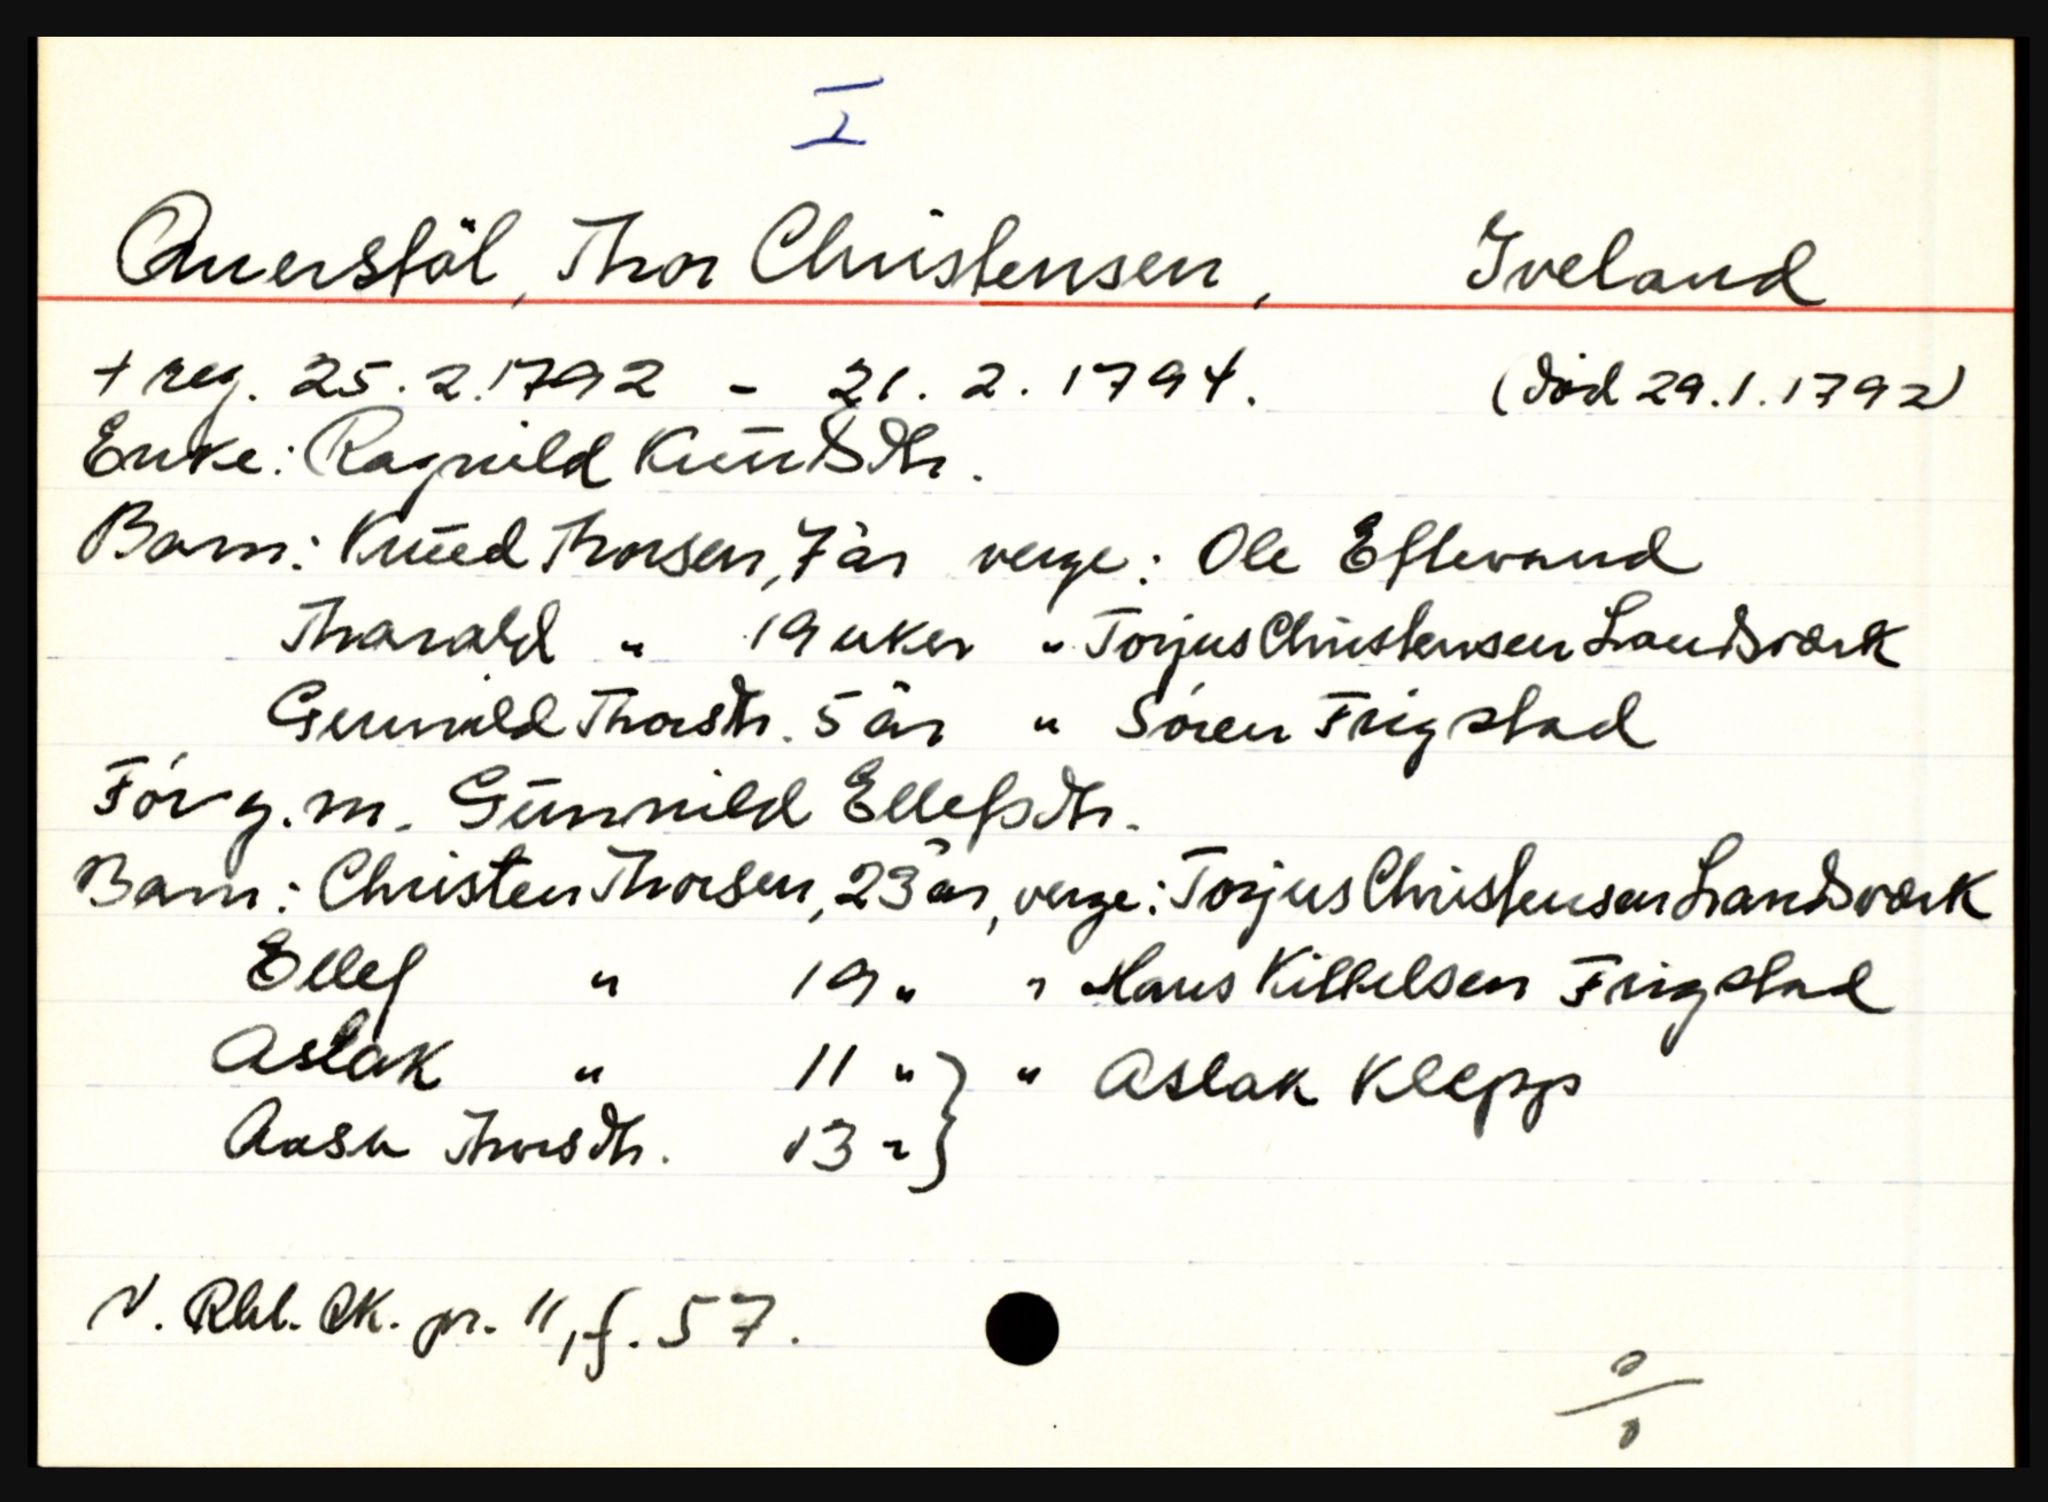 I
Querstöl, Thor Christensen, Iveland
+ reg. 25.2.1792 - 21.2.1794. (död 29.1.1792)
Enke: Ragnild Knudsdtr.
Barn: Knud Thorsen, 7 år verge: Ole Eftevand
Tharald " 19 uker " Torjus Christensen Landsværk
Gunnild Thorsdtr. 5 år " Sören Frigstad
Før g.m. Gunnild Ellefsdtr.
Barn: Christen Thorsen, 23 år, verge: Torjus Christensen Landsværk
Ellef " 19 " " Hans Kittelsen Frigstad
Aslak " 11 " } " Aslak Klepp
Aasu Thorsdtr. 13 " }
N. Rbl. Sk. pr. 11, f. 57.